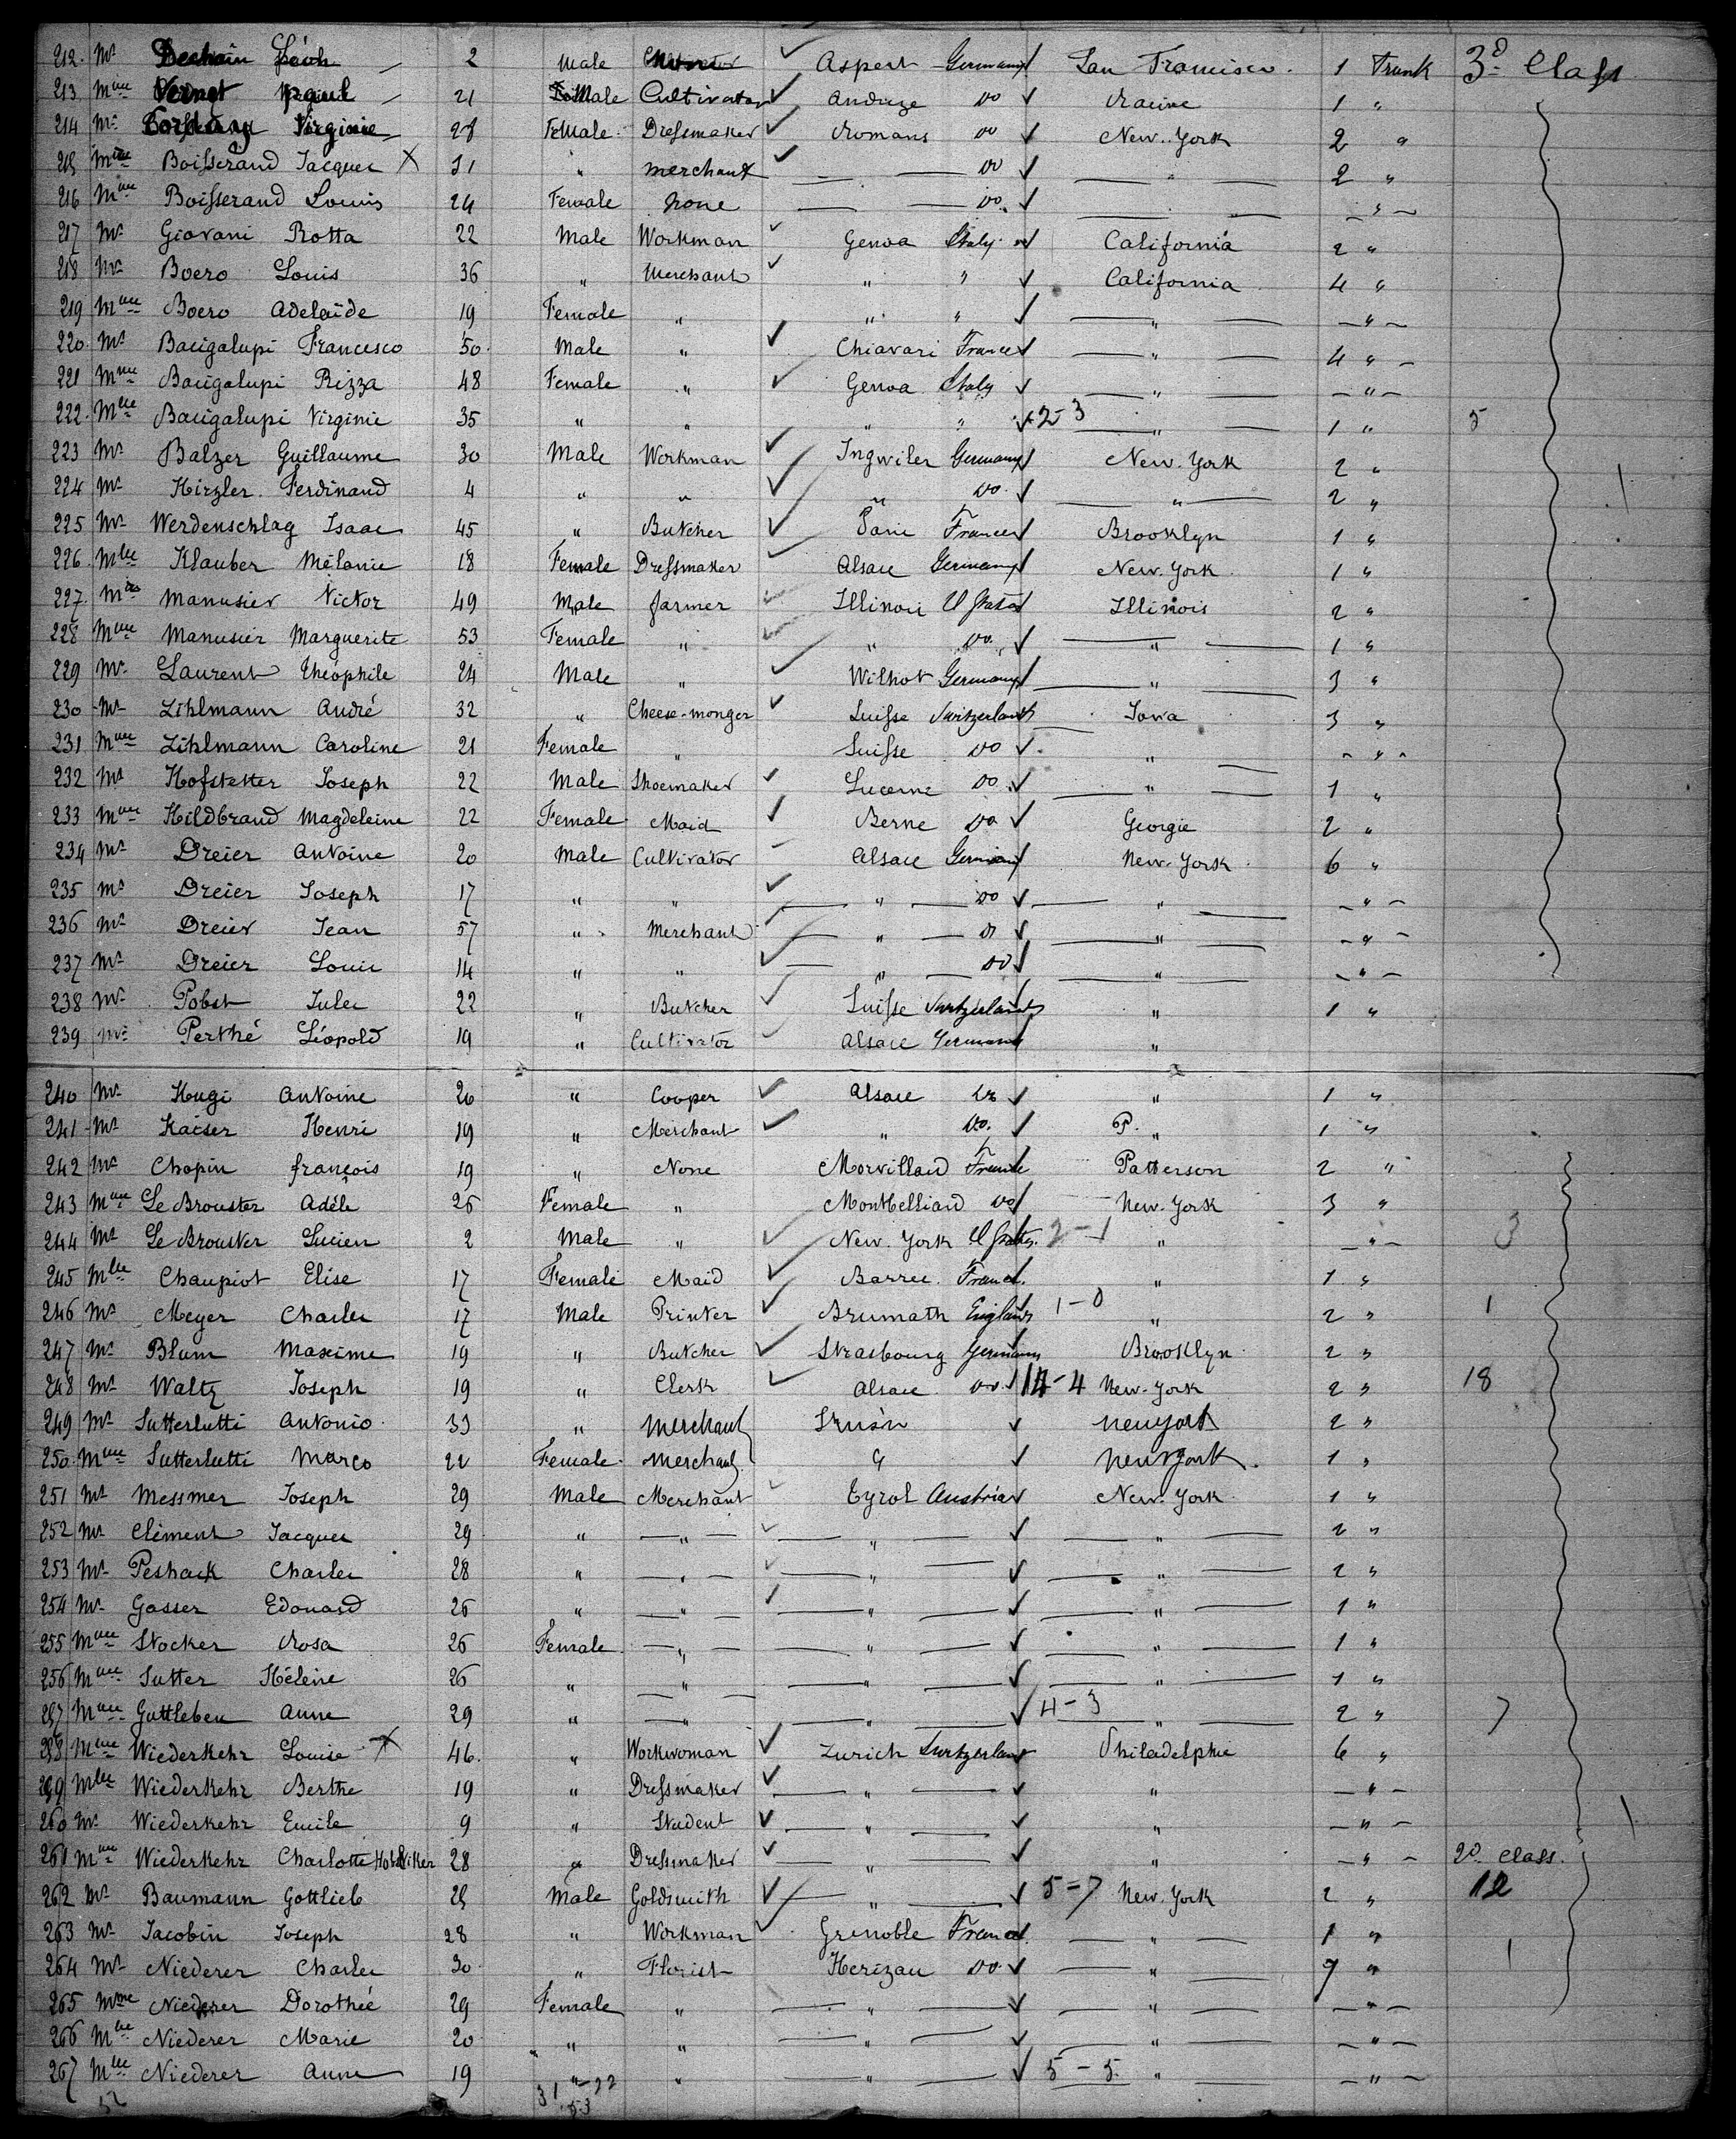 212. Mr Léon 2 Male Aspert Germany San Francisco. 1 Trunk 3d Class
213 Mme Vernet 21 Male Cultivator Anduze Do Racine 1 "
214 Mr Virginie 28 Female Dressmaker Romans Do New-York 2 "
215 Mme Boisserand Jacques X 31 " merchant — — Do — " — 2 "
216 Mme Boisserand Louis 24 Female None — — Do. — " — — " —
217 Mr Giovani Rotta 22 Male Workman Genoa Italy. California 2 "
218 Mr Boero Louis 36 " Merchant " " California 4 "
219 Mme Boero Adelaïde 19 Female " " " — " — — " —
220. Mr Bacigalupi Francesco 50. Male " Chiavari France — " — 4 " —
221 Mme Bacigalupi Rizza 48 Female " Genoa Italy — " — — " —
222. Mlle Bacigalupi Virginie 35 " " " " 2-3 — " — 1 " 5
223 Mr Balzer Guillaume 30 Male Workman Ingwiler Germany New-York 2 "
224 Mr Hirzler Ferdinand 4 " " " Do. — " — 2 "
225 Mr Werdenschlag Isaac 45 " Butcher Paris France Brooklyn 1 "
226. Mlle Klauber Mélanie 18 Female Dressmaker Alsace Germany New-York 1 "
227. Manusier Victor 49 Male farmer Illinois U States Illinois 2 "
228 Mme Manusier Marguerite 53 Female " " Do. — " — 1 "
229 Mr Laurent Théophile 24 Male " Wilhot Germany — " — 3 "
230 Mr Zihlmann André 32 " Cheese-monger Suisse Switzerland Iowa 3 "
231 Mme Zihlmann Caroline 21 Female " Suisse Do " — — " —
232 Mr Hofstetter Joseph 22 Male Shoemaker Lucerne Do — " — 1 "
233 Mme Hildbrand Magdeleine 22 Female Maid Berne Do Georgie 2 "
234 Mr Dreier Antoine 20 Male Cultivator Alsace Germany New-York 6 "
235 Mr Dreier Joseph 17 " " — " — Do — " — — " —
236 Mr Dreier Jean 57 " Merchant — " — Do — " — — " —
237 Mr Dreier Louis 14 " " — " — Do — " — — " —
238 Mr Pobst Jules 22 " Butcher Suisse Switzerland " 1 "
239 Mr Perthé Léopold 19 " Cultivator Alsace Germany "
240 Mr Hugi Antoine 20 " Cooper Alsace Do " 1 "
241 Mr Kaiser Henri 19 " Merchant " Do. P. " 1 "
242 Mr Chopin françois 19 " None Morvillard France Patterson 2 "
243 Mme Le Brouster Adèle 26 Female " Montbelliard Do New-York 3 "
244 Mr Le Brouster Lucien 2 Male " New-York U States. 2-1 " — " — 3
245 Mlle Chaupiot Elise 17 Female Maid Barree France. " 1 "
246 Mr Meyer Charles 17 Male Printer Brumath England 1-0 " 2 " 1
247 Mr Blum Maxime 19 " Butcher Strasbourg Germany Brooklyn 2 "
248 Mr Waltz Joseph 19 " Clerk Alsace Do 14-4 New-York 2 " 18
249 Mr Sutterlutti Antonio. 33 " Merchant New york 2 "
250. Mme Sutterlutti Marco 22 Female. Merchant. " New york. 1 "
251 Mr Messmer Joseph 29 Male Merchant Tyrol Austria New-York 1 "
252 Mr Clément Jacques 29 " — " — — " — — " — 2 "
253 Mr Peshack Charles 28 " — " — — " — — " — 2 "
254 Mr Gasser Edouard 26 " — " — — " — — " — 1 "
255 Mme Stocker Rosa 26 Female — " — — " — — " — 1 "
256 Mme Sutter Hélène 26 " — " — — " — — " — 1 "
257 Mme Guttleben Anne 29 " — " — " — 4-3 — " — 2 " 7
258 Mme Wiederkehr Louise X 46. " Workwoman Zurich Switzerland Philadelphie 6 "
259 Mlle Wiederkehr Berthe 19 " Dressmaker — " — " — " —
260 Mr Wiederkehr Emile 9 " Student — " — " — " —
261 Mme Wiederkehr Charlotte 28 " Dressmaker — " — " — " — 2d class.
262 Mr Baumann Gottlieb 28 Male Goldsmith — " — 5=7 New-York 2 " 12
263 Mr Jacobin Joseph 28 " Workman Grenoble France — " — 1 "
264 Mr Niederer Charles 30 " Florist Herizau Do — " — 7 " 1
265 Mme Niederer Dorothée 29 Female " — " — — " — — " —
266 Mlle Niederer Marie 20 " " — " — — " — — " —
267 Mlle Niederer Anne 19 " " — " — 5-5 — " — — " —
31-22
53